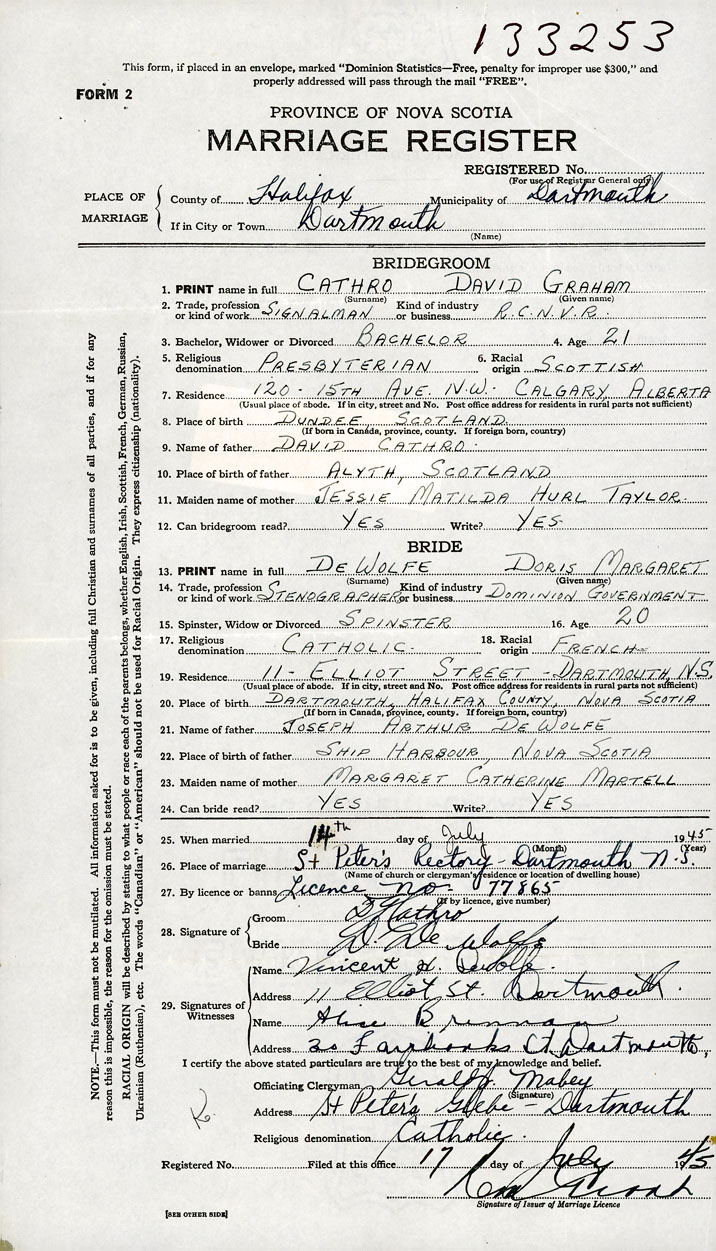 133253
This form, if placed in an envelope, marked "Dominion Statistics—Free, penalty for improper use $300," and
properly addressed will pass through the mail "FREE".
FORM 2
PROVINCE OF NOVA SCOTIA
MARRIAGE REGISTER
REGISTERED No.
(For use of Registrar General only)
PLACE OF MARRIAGE
County of Halifax Municipality of Dartmouth
If in City or Town Dartmouth
(Name)
BRIDEGROOM
1. PRINT name in full CATHRO DAVID GRAHAM
(Surname) (Given name)
2. Trade, profession or kind of work SIGNALMAN Kind of industry or business R.C.N.V.R.
3. Bachelor, Widower or Divorced BACHELOR 4. Age 21
5. Religious denomination PRESBYTERIAN 6. Racial origin SCOTTISH
7. Residence 120-15TH AVE. N.W. CALGARY, ALBERTA
(Usual place of abode. If in city, street and No. Post office address for residents in rural parts not sufficient)
8. Place of birth DUNDEE, SCOTLAND.
(If born in Canada, province, county. If foreign born, country)
9. Name of father DAVID CATHRO.
10. Place of birth of father ALYTH, SCOTLAND
11. Maiden name of mother JESSIE MATILDA HURL TAYLOR.
12. Can bridegroom read? YES Write? YES.
BRIDE
13. PRINT name in full DE WOLFE DORIS MARGARET
(Surname) (Given name)
14. Trade, profession or kind of work STENOGRAPHER Kind of industry or business DOMINION GOVERNMENT
15. Spinster, Widow or Divorced SPINSTER 16. Age 20
17. Religious denomination CATHOLIC. 18. Racial origin FRENCH
19. Residence 11-ELLIOT STREET-DARTMOUTH, N.S.
(Usual place of abode. If in city, street and No. Post office address for residents in rural parts not sufficient)
20. Place of birth DARTMOUTH, HALIFAX COUNTY, NOVA SCOTIA
(If born in Canada, province, county. If foreign born, country)
21. Name of father JOSEPH ARTHUR DE WOLFE
22. Place of birth of father SHIP HARBOUR, NOVA SCOTIA
23. Maiden name of mother MARGARET CATHERINE MARTELL
24. Can bride read? YES Write? YES
25. When married 14th day of July 1945
(Month) (Year)
26. Place of marriage St Peter's Rectory-Dartmouth N.S.
(Name of church or clergyman's residence or location of dwelling house)
27. By licence or banns Licence no- 77865
(If by licence, give number)
28. Signature of
Groom Cathro
Bride D. De Wolfe
29. Signatures of Witnesses
Name Vincent H. DeWolfe.
Address 11 Elliot St. Dartmouth.
Name Alice Brennan
Address 20 Fairbanks St Dartmouth,
I certify the above stated particulars are true to the best of my knowledge and belief.
Officiating Clergyman Gerald Mabey
(Signature)
Address St Peter's Glebe-Dartmouth
Religious denomination Catholic.
Registered No. Filed at this office 17 day of July 1945
Signature of Issuer of Marriage Licence
[SEE OTHER SIDE]
NOTE.—This form must not be mutilated. All information asked for is to be given, including full Christian and surnames of all parties, and if for any
reason this is impossible, the reason for the omission must be stated.
RACIAL ORIGIN will be described by stating to what people or race each of the parents belongs, whether English, Irish, Scottish, French, German, Russian,
Ukrainian (Ruthenian), etc. The words "Canadian" or "American" should not be used for Racial Origin. They express citizenship (nationality).